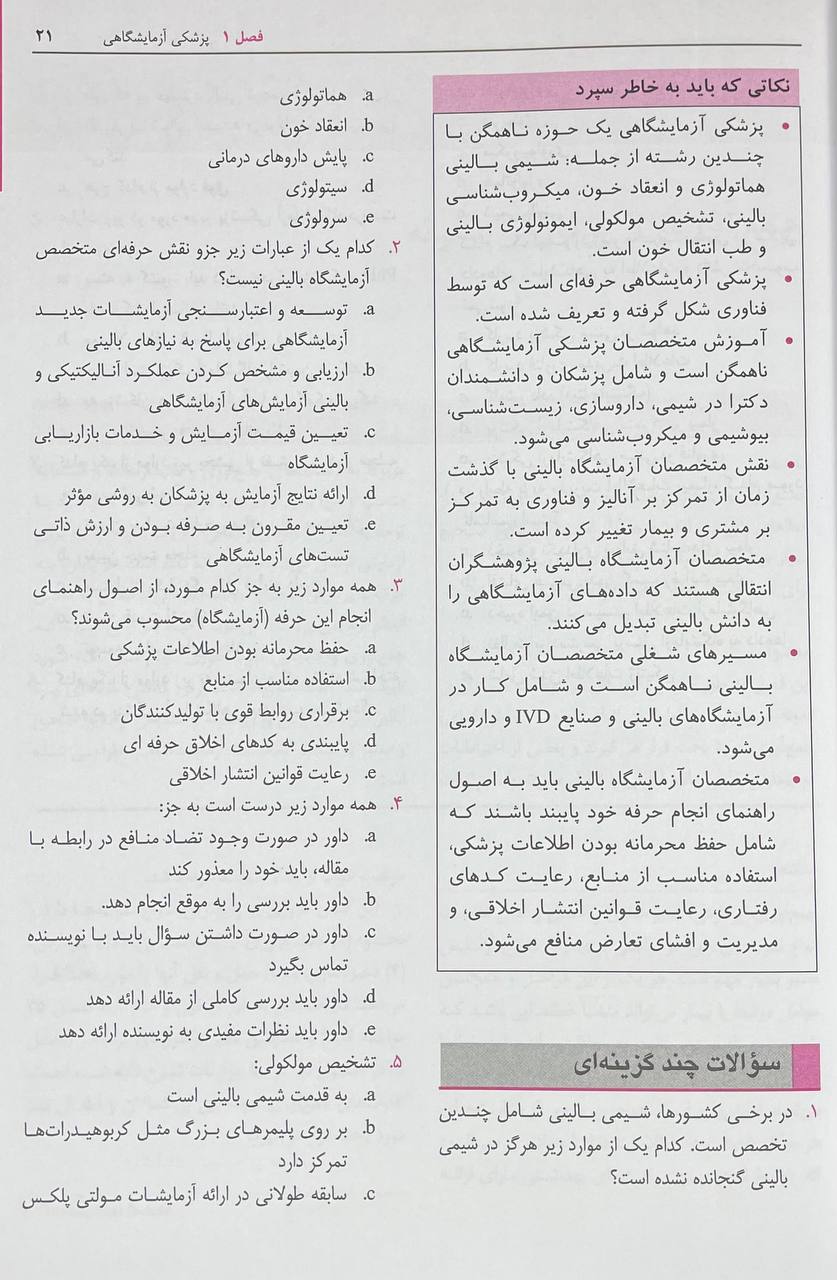 فصل ۱ پزشکی آزمایشگاهی ۲۱
نکاتی که باید به خاطر سپرد
• پزشکی آزمایشگاهی یک حوزه ناهمگن با
چندین رشته از جمله: شیمی بالینی
هماتولوژی و انعقاد خون، میکروب‌شناسی
بالینی، تشخیص مولکولی، ایمونولوژی بالینی
و طب انتقال خون است.
• پزشکی آزمایشگاهی حرفه‌ای است که توسط
فناوری شکل گرفته و تعریف شده است.
• آموزش متخصصان پزشکی آزمایشگاهی
ناهمگن است و شامل پزشکان و دانشمندان
دکترا در شیمی، داروسازی، زیست‌شناسی،
بیوشیمی و میکروب‌شناسی می‌شود.
• نقش متخصصان آزمایشگاه بالینی با گذشت
زمان از تمرکز بر آنالیز و فناوری به تمرکز
بر مشتری و بیمار تغییر کرده است.
• متخصصان آزمایشگاه بالینی پژوهشگران
انتقالی هستند که داده‌های آزمایشگاهی را
به دانش بالینی تبدیل می‌کنند.
• مسیرهای شغلی متخصصان آزمایشگاه
بالینی ناهمگن است و شامل کار در
آزمایشگاه‌های بالینی و صنایع IVD و دارویی
می‌شود.
• متخصصان آزمایشگاه بالینی باید به اصول
راهنمای انجام حرفه خود پایبند باشند که
شامل حفظ محرمانه بودن اطلاعات پزشکی،
استفاده مناسب از منابع، رعایت کدهای
رفتاری، رعایت قوانین انتشار اخلاقی، و
مدیریت و افشای تعارض منافع می‌شود.
سؤالات چند گزینه‌ای
۱. در برخی کشورها، شیمی بالینی شامل چندین
تخصص است. کدام یک از موارد زیر هرگز در شیمی
بالینی گنجانده نشده است؟
a. هماتولوژی
b. انعقاد خون
c. پایش داروهای درمانی
d. سیتولوژی
e. سرولوژی
۲. کدام یک از عبارات زیر جزو نقش حرفه‌ای متخصص
آزمایشگاه بالینی نیست؟
a. توسعه و اعتبارسنجی آزمایشات جدید
آزمایشگاهی برای پاسخ به نیازهای بالینی
b. ارزیابی و مشخص کردن عملکرد آنالیکتیکی و
بالینی آزمایش‌های آزمایشگاهی
c. تعیین قیمت آزمایش و خدمات بازاریابی
آزمایشگاه
d. ارائه نتایج آزمایش به پزشکان به روشی مؤثر
e. تعیین مقرون به صرفه بودن و ارزش ذاتی
تست‌های آزمایشگاهی
۳. همه موارد زیر به جز کدام مورد، از اصول راهنمای
انجام این حرفه (آزمایشگاه) محسوب می‌شوند؟
a. حفظ محرمانه بودن اطلاعات پزشکی
b. استفاده مناسب از منابع
c. برقراری روابط قوی با تولیدکنندگان
d. پایبندی به کدهای اخلاق حرفه ای
e. رعایت قوانین انتشار اخلاقی
۴. همه موارد زیر درست است به جز:
a. داور در صورت وجود تضاد منافع در رابطه با
مقاله، باید خود را معذور کند
b. داور باید بررسی را به موقع انجام دهد.
c. داور در صورت داشتن سؤال باید با نویسنده
تماس بگیرد
d. داور باید بررسی کاملی از مقاله ارائه دهد
e. داور باید نظرات مفیدی به نویسنده ارائه دهد
۵. تشخیص مولکولی:
a. به قدمت شیمی بالینی است
b. بر روی پلیمرهای بزرگ مثل کربوهیدرات‌ها
تمرکز دارد
c. سابقه طولانی در ارائه آزمایشات مولتی پلکس